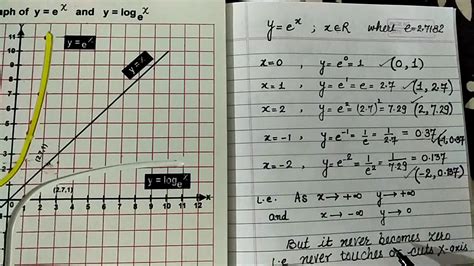 ph of y = e^x and y = log_e x
11
10
9
8
y = e^x
y = x
4
3
2
(2.7,1)
y = log_e x
1 2 3 4 5 6 7 8 9 10 11 12
x
y = e^x ; x∈R where e=2.7182
x=0 , y = e^0 = 1 ✓(0,1)
x=1 , y = e^1 = e = 2.7 ✓(1,2.7)
x=2 , y = e^2 = (2.7)^2 = 7.29 (2,7.29)
x=-1 , y = e^-1 = 1/e = 1/2.7 = 0.37 ✓(-1,0.37)
x=-2 , y = e^-2 = 1/e^2 = 1/7.29 = 0.137
✓(-2,0.137)
i.e. As x→+∞ y→+∞
and x→-∞ y→0
But it never becomes zero
i.e never touches or cuts x-axis